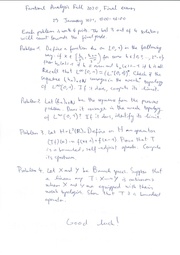 Functional Analysis Fall 2020, Final exam,
25 January 2021,
Each problem is worth points. The best 3 out of 4 solutions
will count towards the final grade.
Problem 1. Define a function on [0,1) in the following
way: if x ∈ for some k ∈
if k is even and if k is odd
Recall that L^∞ [0,1) = (L^1 [0,1))*. Check if the
sequence converges in the topology
of L^∞ [0,1). If it does, compute its limit.
Problem 2. Let be the sequence from the previous
problem. Does it converge in the weak topology
of [0,1)? If it does, identify its limit.
Problem 3. Let H = L²(R). Define on H an operator
(Tf)(x) = f(x+1) + f(x-1). Prove that T
is a bounded self-adjoint operator. Compute
its spectrum.
Problem 4. Let X and Y be Banach spaces. Suppose that
a linear map T: X → Y is continuous
when X and Y are equipped with their
weak topologies. Show that T is a bounded
operator.
Good luck!